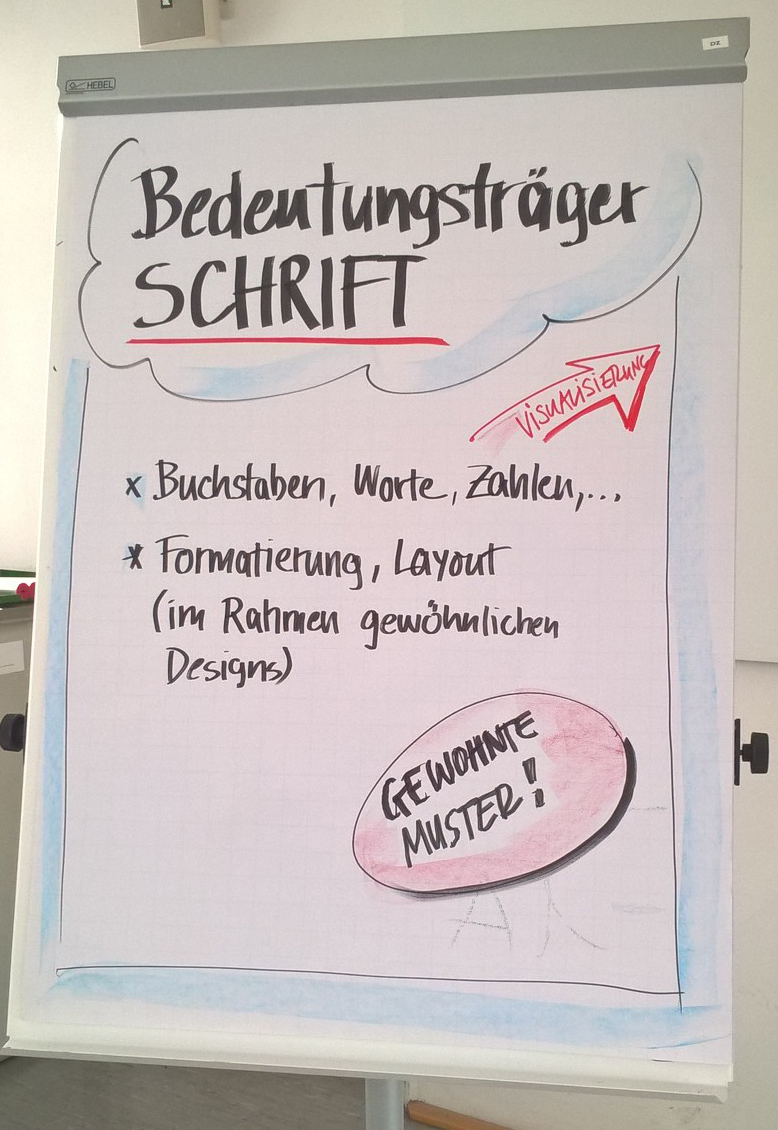 DZ
HEBEL
Bedeutungsträger
SCHRIFT
VISUALISIERUNG
x Buchstaben, Worte, Zahlen,...
* Formatierung, Layout
(im Rahmen gewöhnlichen
Designs)
GEWOHNTE
MUSTER!